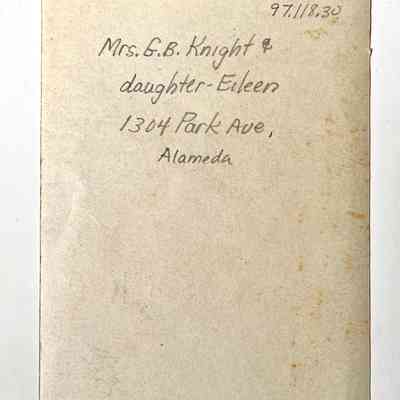 97.118.30
Mrs. G.B. Knight &
daughter-Eileen
1304 Park Ave,
Alameda